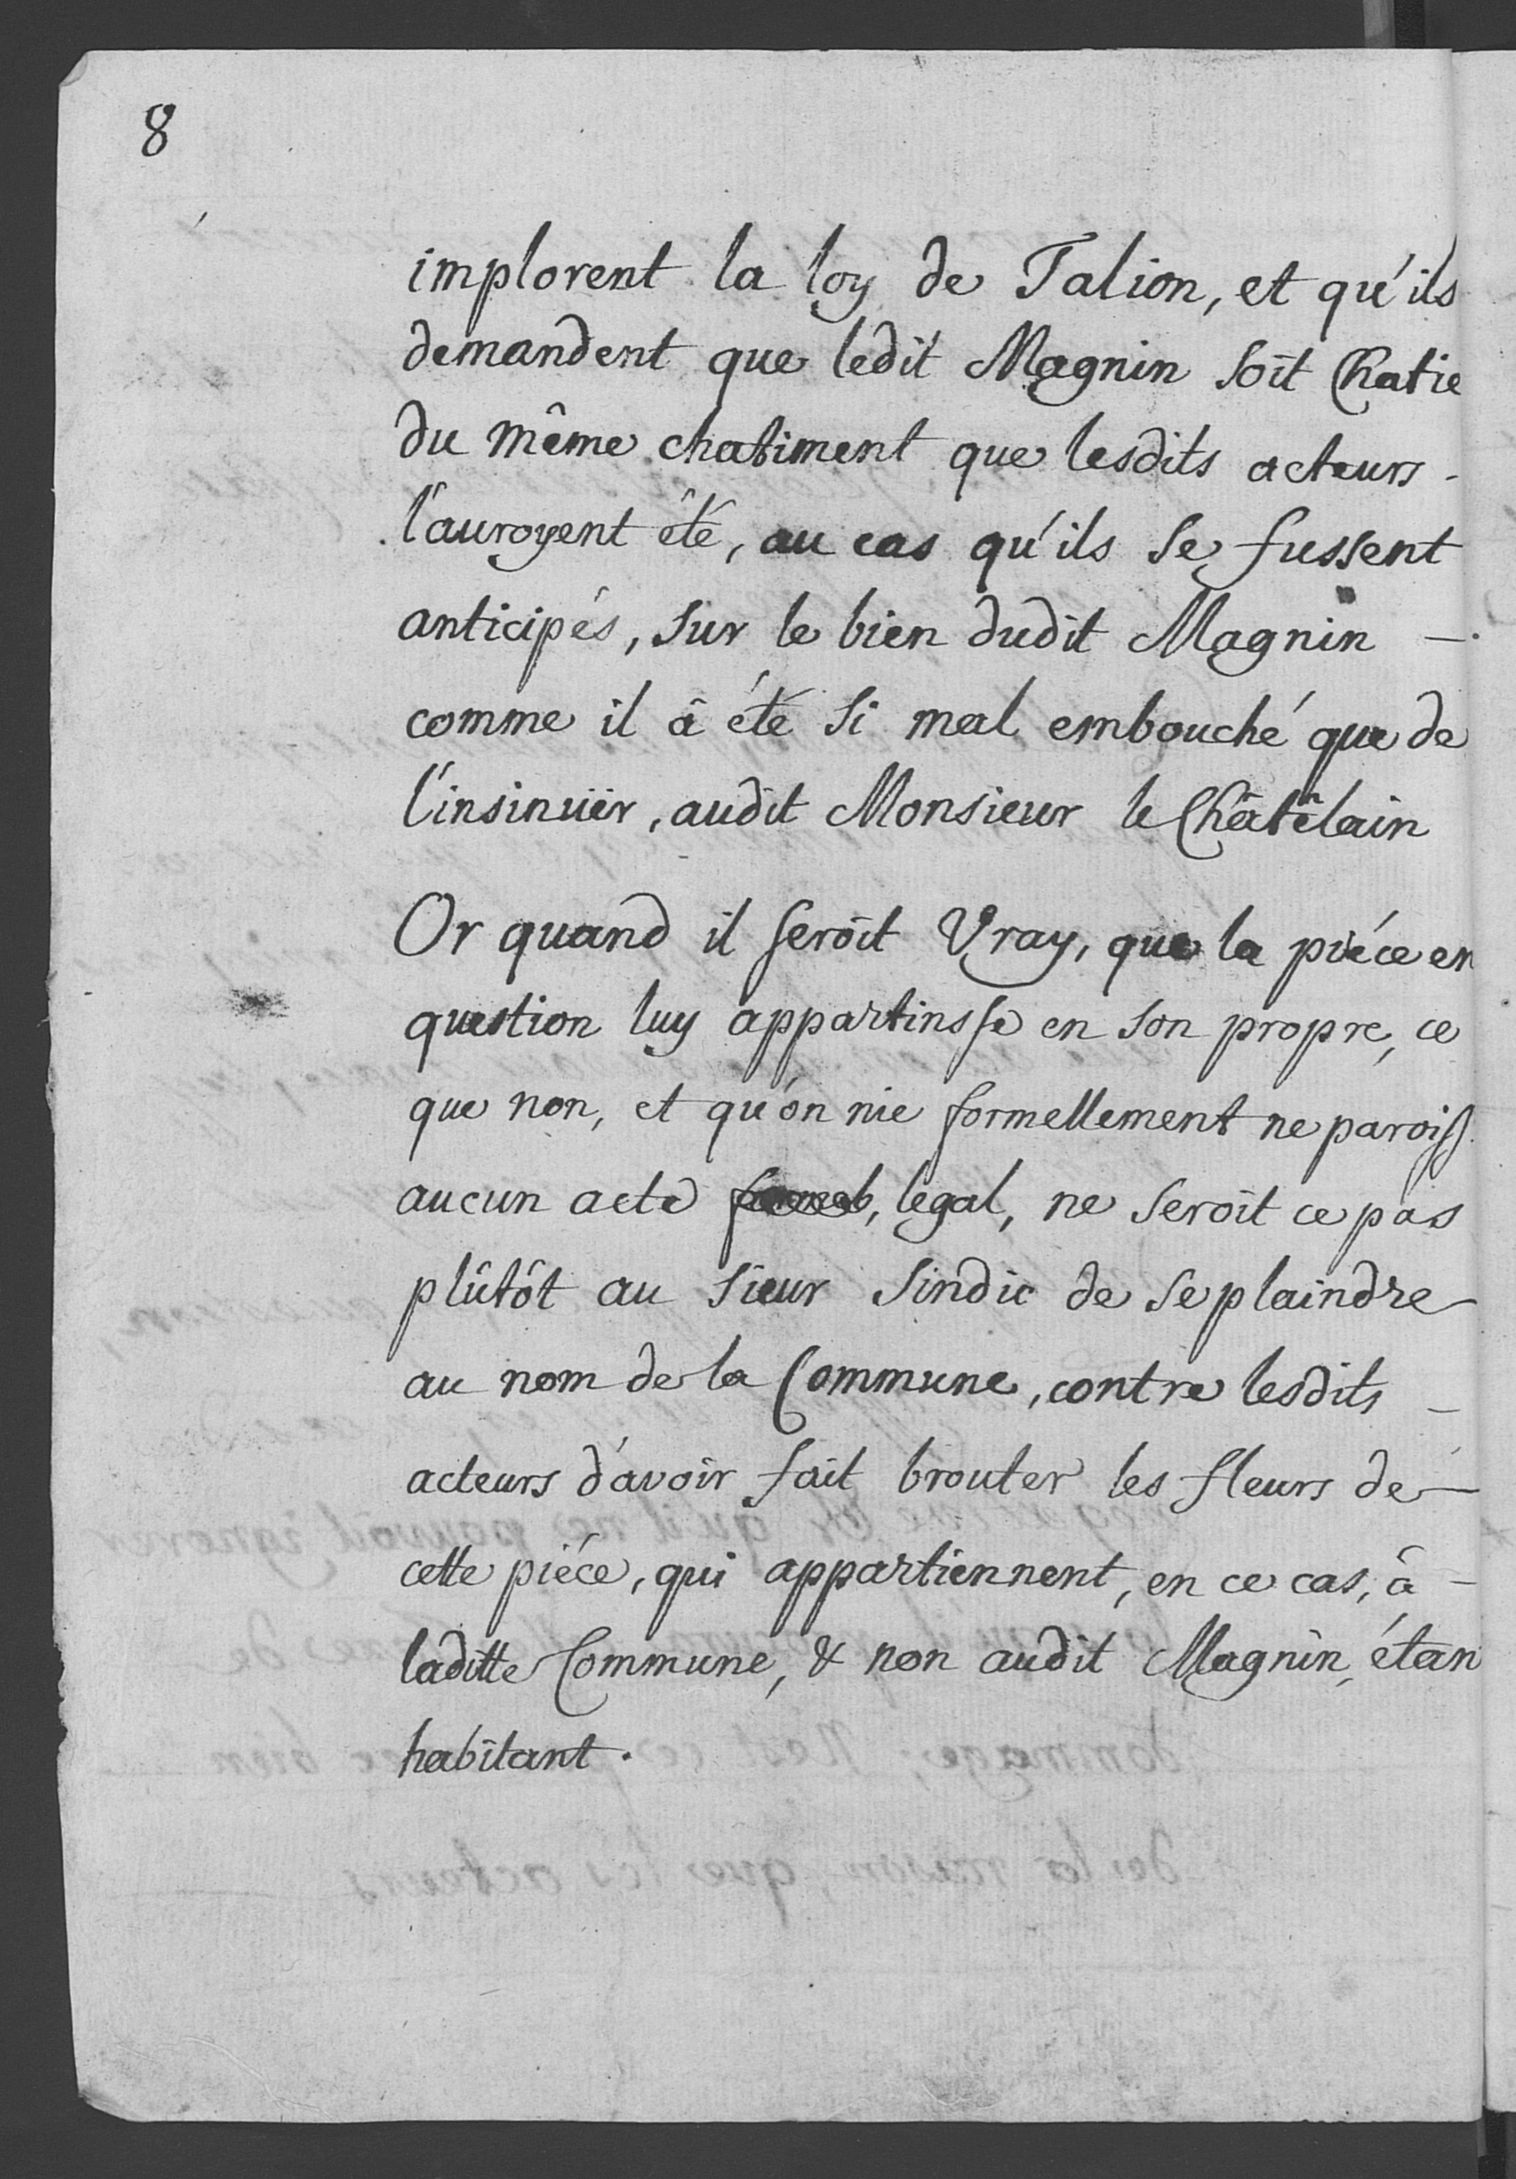 8
implorent la loy de Talion, et qu'ils
demandent que ledit Magnin soit Chatie
du même chatiment que lesdits acteurs
l'auroyent été, au cas qu'ils se fussent
anticipés, sur le bien dudit Magnin —
comme il â été si mal embouché que de
l'insinuër, audit Monsieur le Châtêlain
Or quand il seroit Vray, que la piéce en
question luy appartinsse en son propre, ce
que non, et qu'on nie formellement ne paroiss
aucun acte legal, ne seroit ce pas
plûtôt au sieur Sindic de se plaindre
au nom de la Commune, contre lesdits —
acteurs d'avoir fait brouter les fleurs de —
cette piéce, qui appartiennent, en ce cas, â —
laditte Commune, & non audit Magnin, étan
habitant.